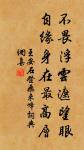 不畏浮雲遮望眼
自緣身在最高層
王安石登飛來峰詞典
網臺